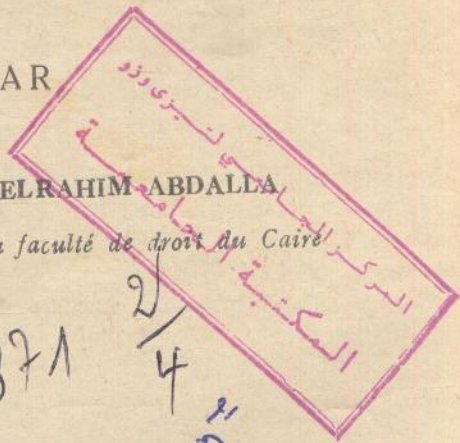 AR
ELRAHIM ABDALLA
faculté de droit du Caire
المركز الجامعي لتيزي وزو
المكتبة الجامعية
371
4